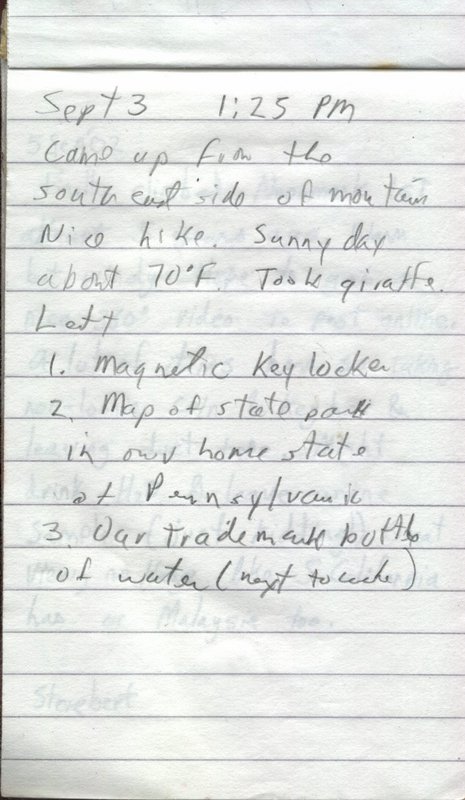 Sept 3 1:25 PM
Came up from the
south end side of mountain
Nice hike. Sunny day
about 70°F. Took giraffe.
Left
1. Magnetic Key locker
2. Map of state park
in our home state
of Pennsylvania
3. Our trademark bottle
of water (next to cache)
has or Malaysia too.
Stonebert